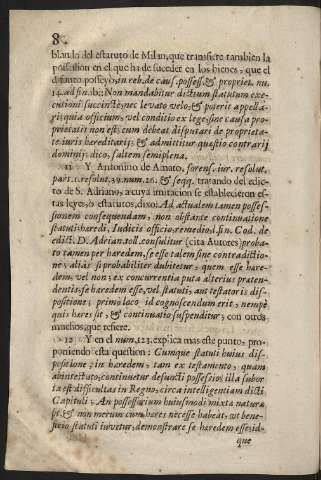 8
blando del estatuto de Milan, que transfiere tambien la
possession en el que ha de suceder en los bienes, que el
difunto posseyò, in reb. de caus. possess. & propriet. nu.
14. ad fin. ib: Non mandabitur dictum statutum exe-
cutioni succinctè; nec levato velo; & poterit appella-
ri, quia officium, vel conditio ex lege, sine causa pro-
prietatis non est; cum debeat disputari de proprieta-
te iuris hereditarij; & admittitur quæstio contrarij
dominij: dico, saltem semiplena.
11 Y Antonino de Amato, forens. iur. resolut.
part. 1. resolut. 39. num. 26. & seqq. tratando del edic-
to de S. Adriano, a cuya imitacion se establecieron es-
tas leyes, ò estatutos, dixo: Ad actualem tamen posses-
sionem consequendam, non obstante continuatione
statuti: heredi, Iudicis officio, remedio l. fin. Cod. de
edict. D. Adrian. toll. consulitur (cita Autores) proba-
to tamen per haredem, se esse talem sine contradictio-
ne; aliàs si probabiliter dubitetur, quem esse hære-
dem, vel non; ex concurrentia puta alterius præten-
dentis, se hæredem esse, vel statuti, aut testatoris dis-
positione; primo loco id cognoscendum erit, nempè
quis hæres sit, & continuatio suspenditur; con otros
muchos, que refiere.
12 Y en el num. 123. explica mas este punto, pro-
poniendo esta question: Cumque statuti huius dis-
positione; in hæredem, tam ex testamento, quam
abintestato, continuetur defuncti possessio; illa subor-
ta est difficultas in Regno, circa intelligentiam dicti
Capituli; An possessorium huiusmodi mixta naturæ
sit, & non merum cum hæres necesse habeat, vt bene-
ficio statuti iuvetur, demonstrare se hæredem esse: id-
que